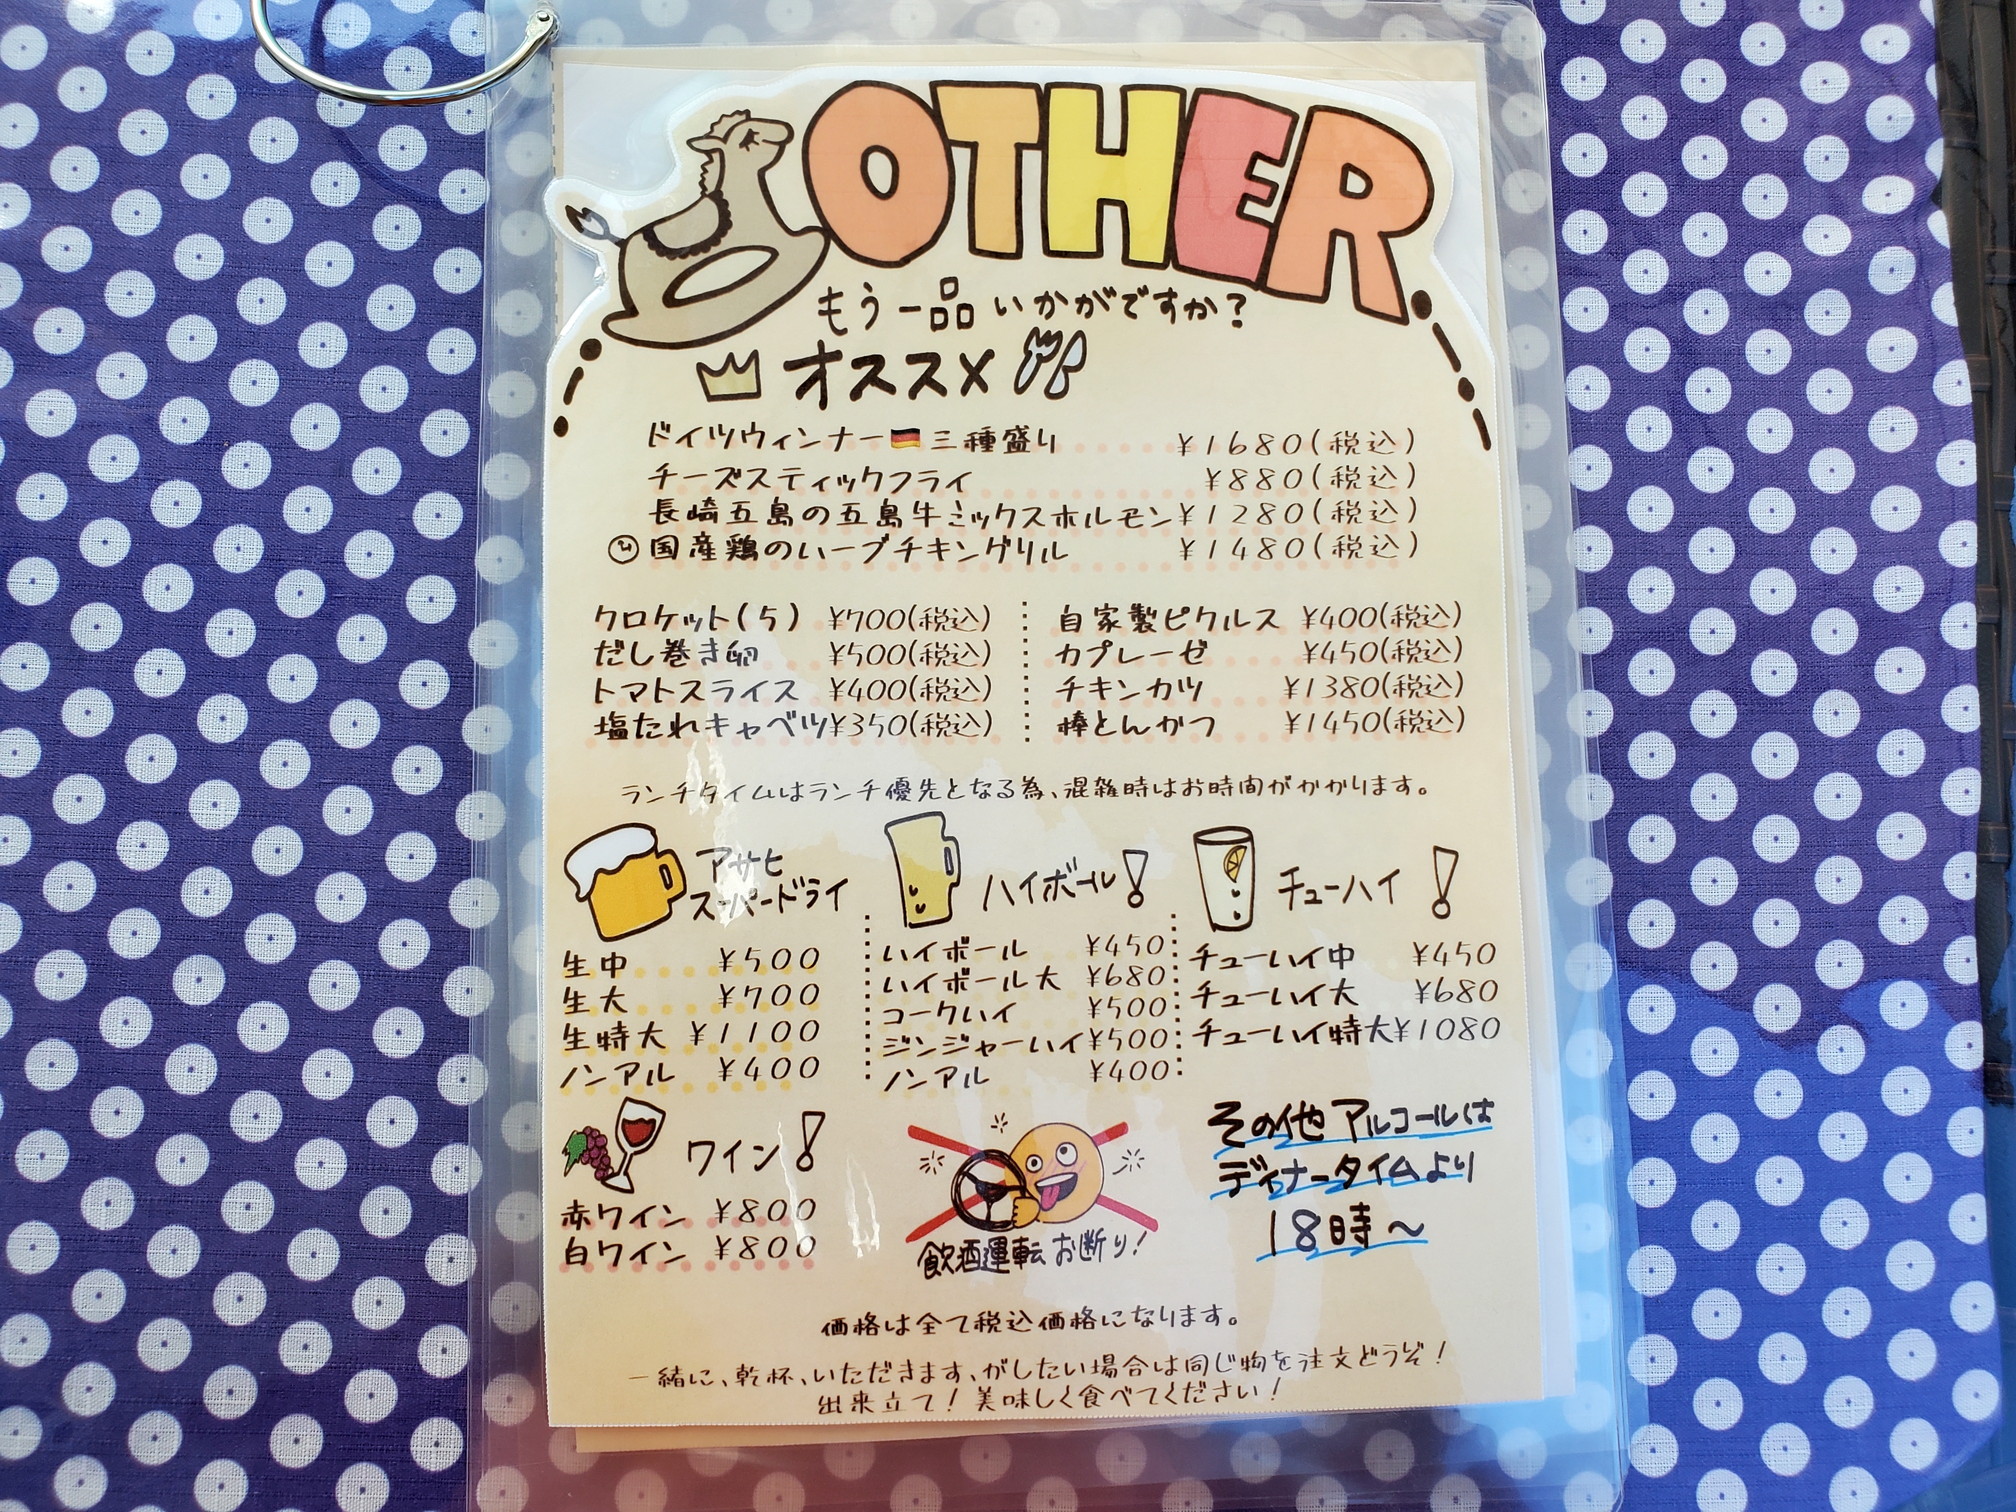 OTHER
もう一品いかがですか?
オススメ
ドイツウィンナー🇩🇪三種盛り ¥1680(税込)
チーズスティックフライ ¥880(税込)
長崎五島の五島牛ミックスホルモン¥1280(税込)
国産鶏のハーブチキングリル ¥1480(税込)
クロケット(5) ¥700(税込)
だし巻き卵 ¥500(税込)
トマトスライス ¥400(税込)
塩たれキャベツ¥350(税込)
自家製ピクルス ¥400(税込)
カプレーゼ ¥450(税込)
チキンカツ ¥1380(税込)
棒とんかつ ¥1450(税込)
ランチタイムはランチ優先となる為、混雑時はお時間がかかります。
アサヒ
スーパードライ
生中 ¥500
生大 ¥700
生特大 ¥1100
ノンアル ¥400
ハイボール!
ハイボール ¥450
ハイボール大 ¥680
コークハイ ¥500
ジンジャーハイ¥500
ノンアル ¥400
チューハイ!
チューハイ中 ¥450
チューハイ大 ¥680
チューハイ特大¥1080
ワイン!
赤ワイン ¥800
白ワイン ¥800
飲酒運転お断り!
その他アルコールは
ディナータイムより
18時〜
価格は全て税込価格になります。
一緒に、乾杯、いただきます、がしたい場合は同じ物を注文どうぞ!
出来立て!美味しく食べてください!